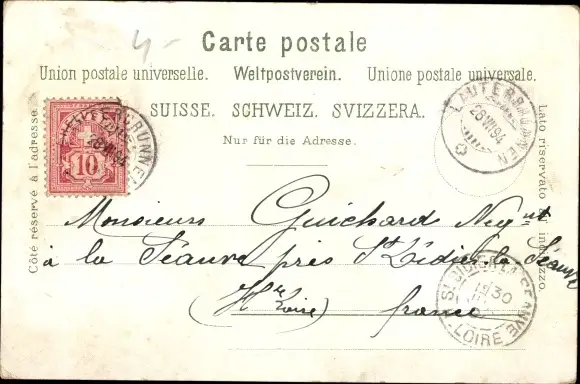 4-
Carte postale
Union postale universelle. Weltpostverein. Unione postale universale.
SUISSE. SCHWEIZ. SVIZZERA.
Nur für die Adresse.
Côté réservé à l'adresse.
Lato riservato all' indirizzo.
HELVETIA
10
LAUTERBRUNNEN
28.VII.94
Monsieur Guichard Negnt
à la Séauve près St Didier la Séauve
(Hte Loire) france
ST DIDIER-LA-SEAUVE
30
LOIRE